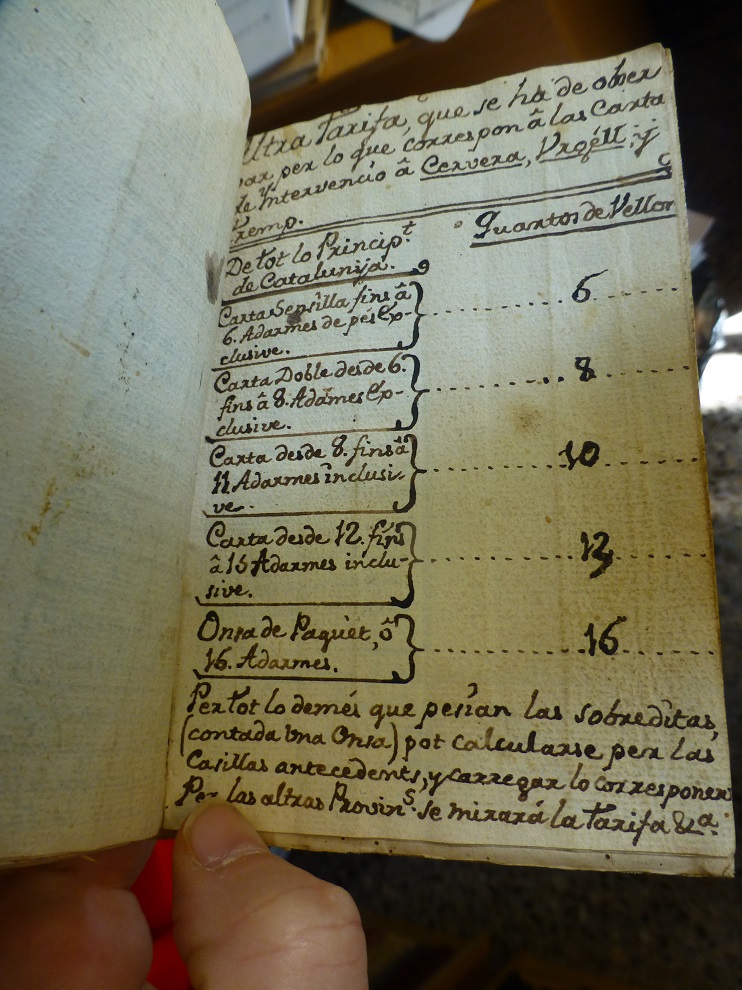 Altra Tarifa, que se ha de obser
var per lo que correspon â las Carta
de Intervenció â Cervera, Urgéll, y
Tremp.
Quartos de Vellon
De tot lo Principt.
de Catalunÿa.
Carta Sensilla fins â
6. Adarmes de pés Ex-
clusive.
6
Carta Doble desde 6.
fins â 8. Adarmes Ex-
clusive.
8
Carta desde 8. fins â
11 Adarmes inclusi-
ve.
10
Carta desde 12. fins
â 15 Adarmes inclu-
sive.
Onsa de Paquet, ô
16. Adarmes.
16
Per tot lo demés que pesian las sobreditas,
(contada una Onsa) pot calcularse per las
Casillas antecedents, y carregar lo corresponen
Per las altras Provins. se mirará la Tarifa &a.